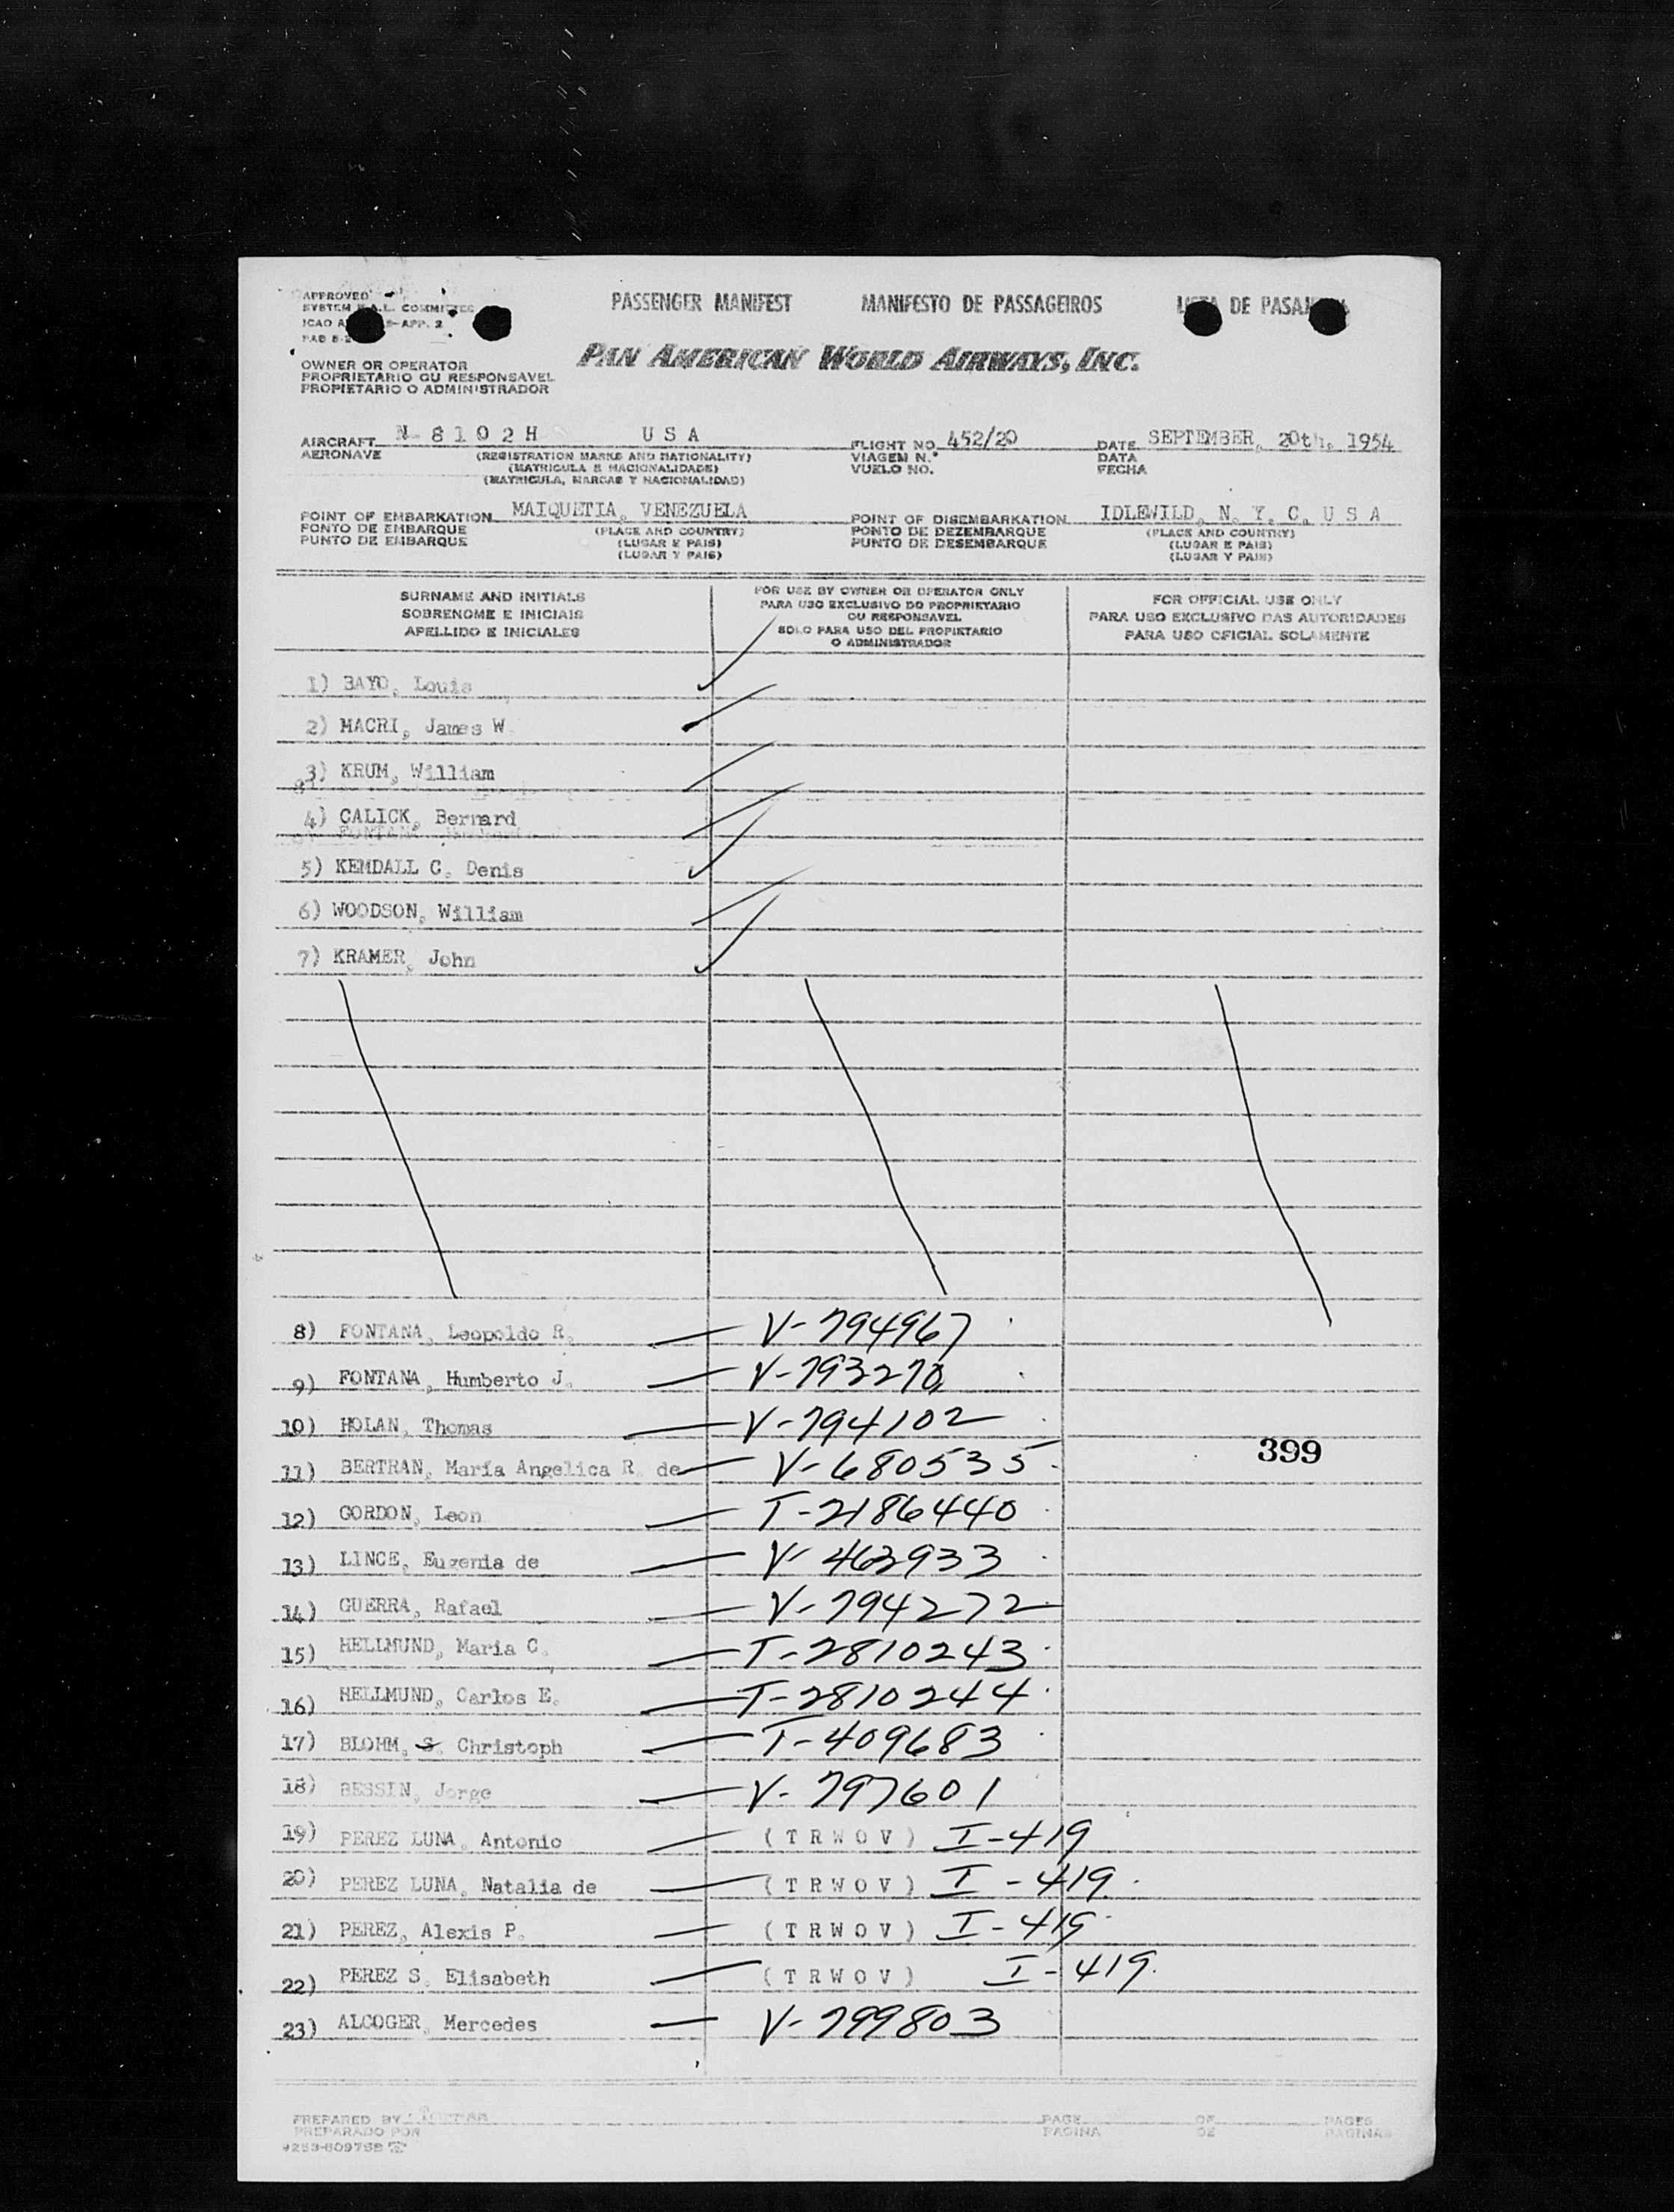 APPROVED
SYSTEM COMMITTEE
ICAO APP. 2
PASSENGER MANIFEST MANIFESTO DE PASSAGEIROS LISTA DE PASAJEROS
PAN AMERICAN WORLD AIRWAYS, INC.
OWNER OR OPERATOR
PROPRIETARIO OU RESPONSAVEL
PROPIETARIO O ADMINISTRADOR
AIRCRAFT N-8102H USA FLIGHT NO. 452/20 DATE SEPTEMBER, 20th, 1954
AERONAVE (REGISTRATION MARKS AND NATIONALITY) VIAGEM N.° DATA
(MATRICULA E NACIONALIDADE) VUELO NO. FECHA
(MATRICULA, MARCAS Y NACIONALIDAD)
POINT OF EMBARKATION MAIQUETIA, VENEZUELA POINT OF DISEMBARKATION IDLEWILD, N. Y. C. U S A
PONTO DE EMBARQUE (PLACE AND COUNTRY) PONTO DE DEZEMBARQUE (PLACE AND COUNTRY)
PUNTO DE EMBARQUE (LUGAR E PAIS) PUNTO DE DESEMBARQUE (LUGAR E PAIS)
(LUGAR Y PAIS) (LUGAR Y PAIS)
SURNAME AND INITIALS
SOBRENOME E INICIAIS
APELLIDO E INICIALES
FOR USE BY OWNER OR OPERATOR ONLY
PARA USO EXCLUSIVO DO PROPRIETARIO
OU RESPONSAVEL
SOLO PARA USO DEL PROPIETARIO
O ADMINISTRADOR
FOR OFFICIAL USE ONLY
PARA USO EXCLUSIVO DAS AUTORIDADES
PARA USO OFICIAL SOLAMENTE
1) BAYO, Louis
2) MACRI, James W.
3) KRUM, William
4) CALICK, Bernard
5) KEMDALL C. Denis
6) WOODSON, William
7) KRAMER, John
8) FONTANA, Leopoldo R. V-794967
9) FONTANA, Humberto J. V-793270
10) HOLAN, Thomas V-794102
399
11) BERTRAN, María Angelica R. de V-680535
12) GORDON, Leon T-2186440
13) LINCE, Eugenia de V-463933
14) GUERRA, Rafael V-794272
15) HELLMUND, Maria C. T-2810243
16) HELLMUND, Carlos E. T-2810244
17) BLOHM, S. Christoph T-409683
18) BESSIN, Jorge V-797601
19) PEREZ LUNA, Antonio (TRWOV) I-419
20) PEREZ LUNA, Natalia de (TRWOV) I-419
21) PEREZ, Alexis P. (TRWOV) I-419
22) PEREZ S. Elisabeth (TRWOV) I-419
23) ALCOGER, Mercedes V-799803
PREPARED BY PAGE OF PAGES
PREPARADO POR PAGINA DE PAGINAS